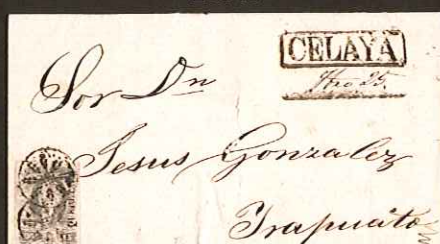 CELAYA
Sor Dn
Jesus Gonzalez
Irapuato